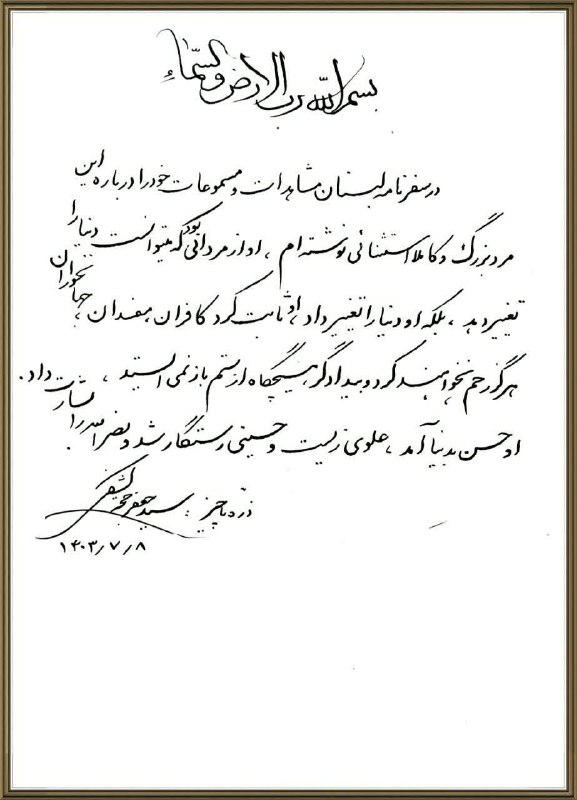 بسم الله رب الارض و السماء
در سفرنامه لبنان مشاهدات و مسموعات خود را درباره این
مرد بزرگ و کاملا استثنائی نوشته ام ، او از مردانی بود که میتوانست دنیا را
تغییر دهد ، بلکه او دنیا را تغییر داد ، او ثابت کرد کافران ، مفسدان ، جهانخواران
هرگز رحم نخواهند کرد و بیدادگر هیچگاه از ستم باز نمی ایستد ،
او حسن بدنیا آمد ، علوی زیست و حسینی رستگار شد و نصر الله را بشارت داد .
ذره ناچیز : سید جعفر
۱۴۰۳/۷/۸